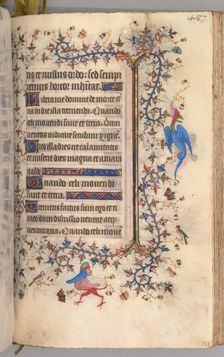 us et nullus ordo: sed sempi
ternus horror inhitat.
Libera me domine de morte et
na in die illa tremenda. Quando
celi mouendi sunt et terra. Dum
ueneris iudicare seculum p igne.
Dies illa dies ire calamitatis
et miserie dies magna et amara
ualde.
Quando celi mouendi
sunt et terra.
Tremens factus sum ego et ti
meo dum discussio uenerit atque
uentura ira. Quando celi moue